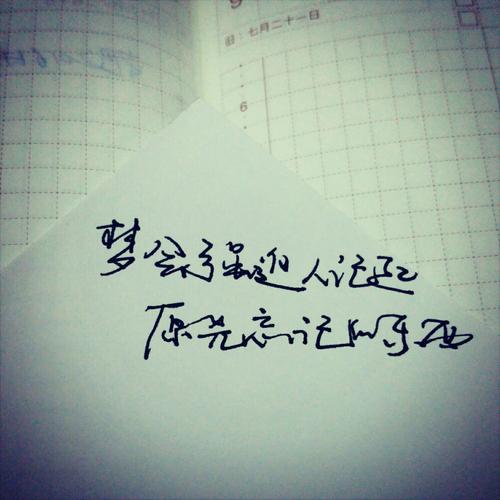 9
旧：七月二十一日
6
梦会强迫人记起
原先忘记的东西